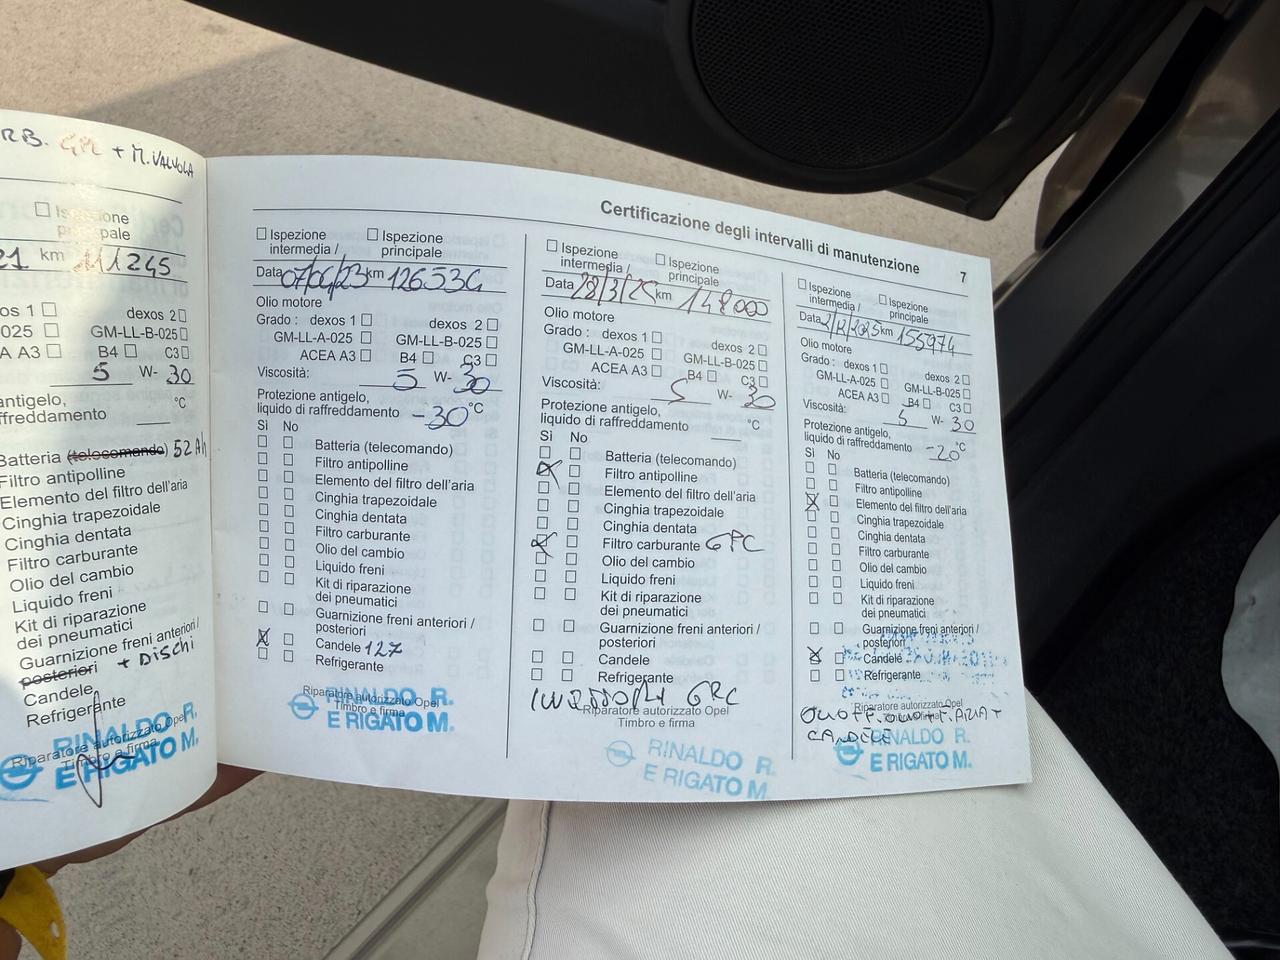 RB. GPL + M. VALVOLA
Ispezione
principale
21 km 111245
os 1 dexos 2
025 GM-LL-B-025
A A3 B4 C3
5 W- 30
antigelo,
affreddamento °C
Batteria (telecomando) 52 Ah
Filtro antipolline
Elemento del filtro dell'aria
Cinghia trapezoidale
Cinghia dentata
Filtro carburante
Olio del cambio
Liquido freni
Kit di riparazione
dei pneumatici
Guarnizione freni anteriori /
posteriori + DISCHI
Candele
Refrigerante
Riparatore autorizzato Opel
Timbro e firma
RINALDO R.
E RIGATO M.
Certificazione degli intervalli di manutenzione 7
Ispezione intermedia / Ispezione principale
Data km 126534
Olio motore
Grado : dexos 1 dexos 2
GM-LL-A-025 GM-LL-B-025
ACEA A3 B4 C3
Viscosità: 5 W- 30
Protezione antigelo,
liquido di raffreddamento -30 °C
Sì No
Batteria (telecomando)
Filtro antipolline
Elemento del filtro dell'aria
Cinghia trapezoidale
Cinghia dentata
Filtro carburante
Olio del cambio
Liquido freni
Kit di riparazione
dei pneumatici
Guarnizione freni anteriori /
posteriori
Candele 127
Refrigerante
Riparatore autorizzato Opel
Timbro e firma
RINALDO R.
E RIGATO M.
Ispezione intermedia / Ispezione principale
Data km 148000
Olio motore
Grado : dexos 1 dexos 2
GM-LL-A-025 GM-LL-B-025
ACEA A3 B4 C3
Viscosità: 5 W- 30
Protezione antigelo,
liquido di raffreddamento °C
Sì No
Batteria (telecomando)
Filtro antipolline
Elemento del filtro dell'aria
Cinghia trapezoidale
Cinghia dentata
Filtro carburante GPL
Olio del cambio
Liquido freni
Kit di riparazione
dei pneumatici
Guarnizione freni anteriori /
posteriori
Candele
Refrigerante
Riparatore autorizzato Opel
Timbro e firma
RINALDO R.
E RIGATO M.
Ispezione intermedia / Ispezione principale
Data km 155974
Olio motore
Grado : dexos 1 dexos 2
GM-LL-A-025 GM-LL-B-025
ACEA A3 B4 C3
Viscosità: 5 W- 30
Protezione antigelo,
liquido di raffreddamento -20 °C
Sì No
Batteria (telecomando)
Filtro antipolline
Elemento del filtro dell'aria
Cinghia trapezoidale
Cinghia dentata
Filtro carburante
Olio del cambio
Liquido freni
Kit di riparazione
dei pneumatici
Guarnizione freni anteriori /
posteriori
Candele
Refrigerante
Riparatore autorizzato Opel
CANDELE
RINALDO R.
E RIGATO M.